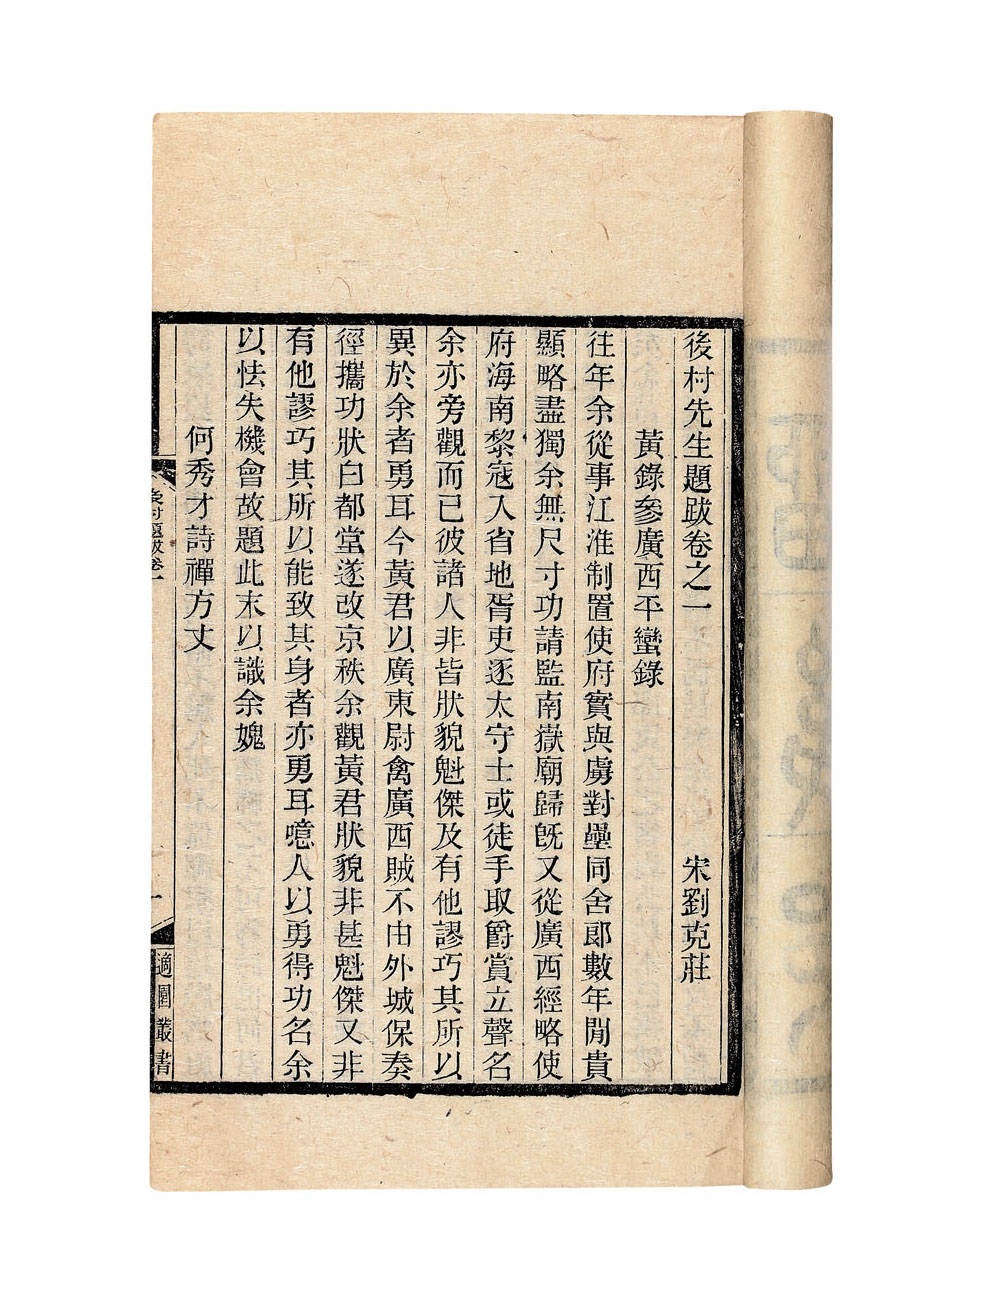 後村先生題跋卷之一　宋劉克莊
黃錄參廣西平蠻錄
往年余從事江淮制置使府實與虜對壘同舍郎數年閒貴
顯略盡獨余無尺寸功請監南嶽廟歸旣又從廣西經略使
府海南黎寇入省地胥吏逐太守士或徒手取爵賞立聲名
余亦旁觀而已彼諸人非皆狀貌魁傑及有他謬巧其所以
異於余者勇耳今黃君以廣東尉禽廣西賊不由外城保奏
徑攜功狀白都堂遂改京秩余觀黃君狀貌非甚魁傑又非
有他謬巧其所以能致其身者亦勇耳噫人以勇得功名余
以怯失機會故題此末以識余媿
何秀才詩禪方丈
後村題跋卷一
一
適園叢書